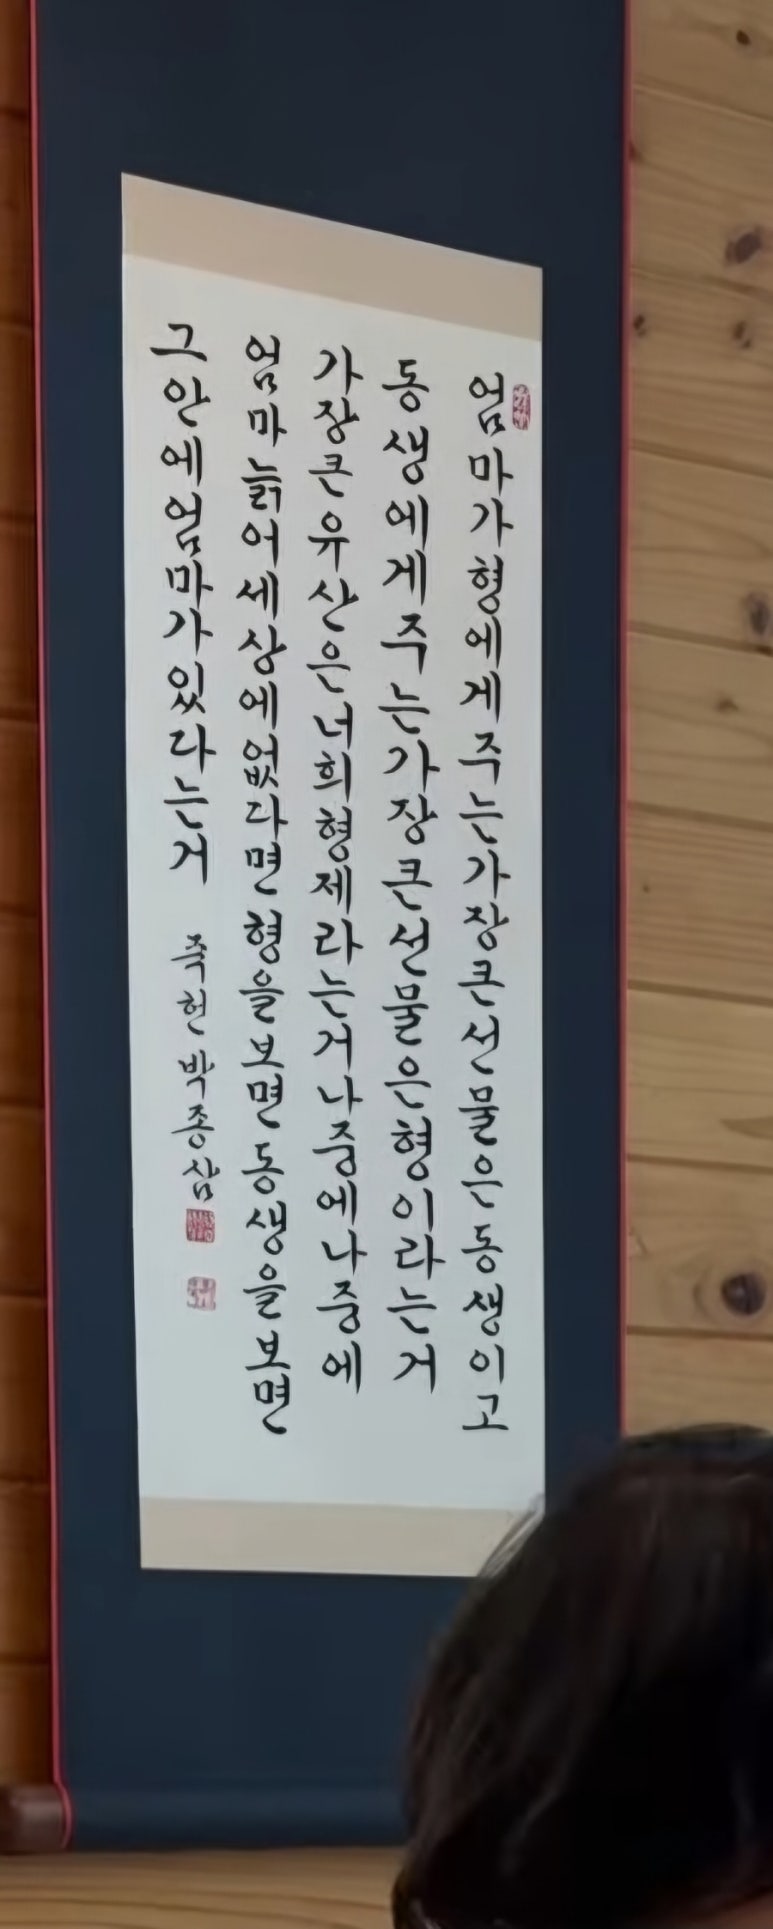 엄마가형에게주는가장큰선물은동생이고
동생에게주는가장큰선물은형이라는거
가장큰유산은너희형제라는거나중에나중에
엄마늙어세상에없다면형을보면동생을보면
그안에엄마가있다는거
죽헌박종삼